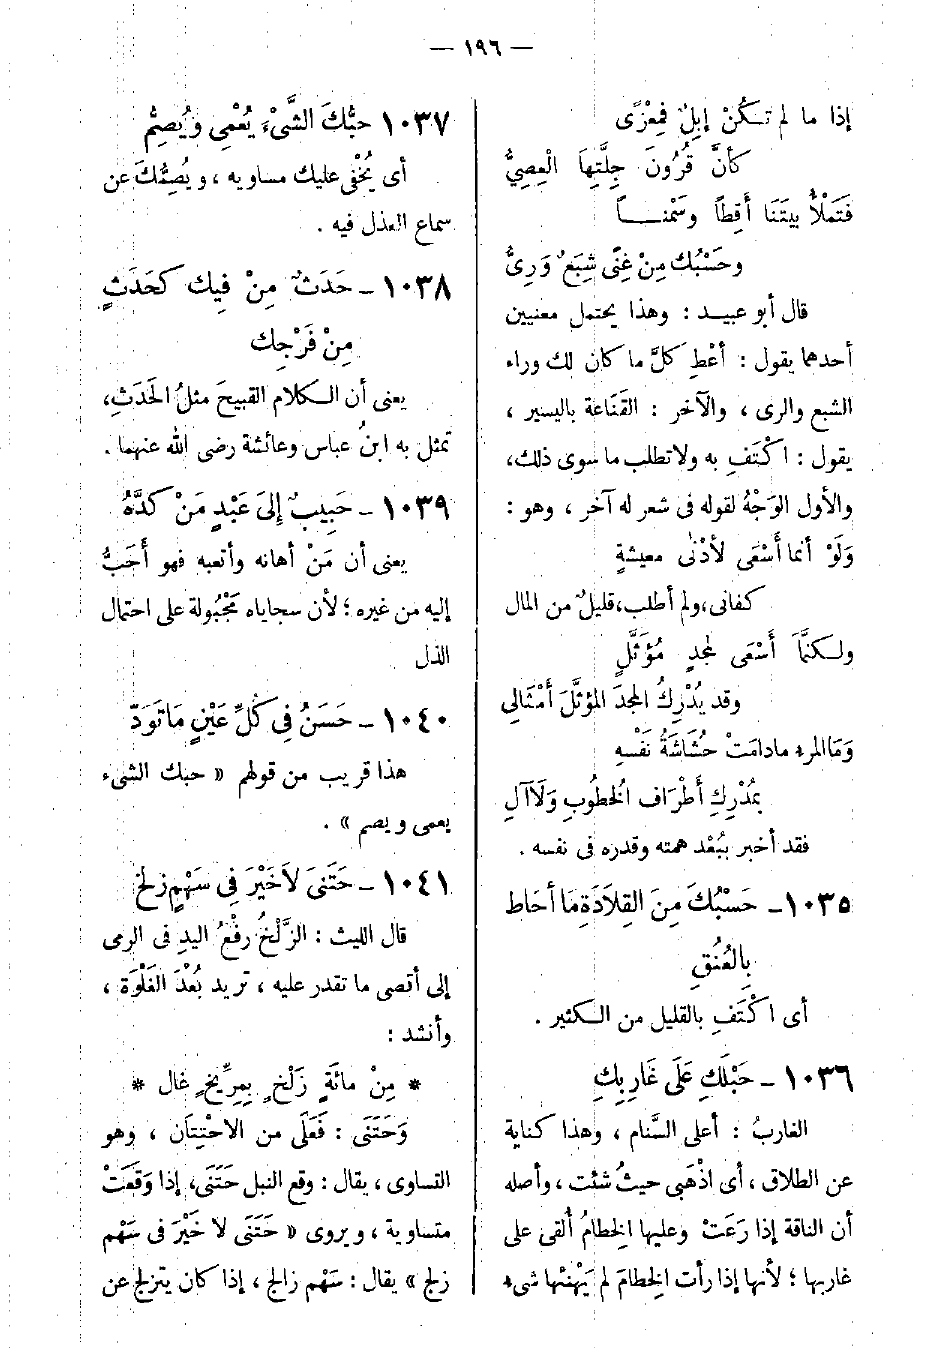 — ١٩٦ —
إذا ما لم تكُنْ إبِلٌ فَمِعْزًى
كأنَّ قُرُونَ جِلَّتِهَا الْعِصِيُّ
فَتَمْلَأُ بيتَنَا أَقِطاً وسَمْناً
وحَسْبُكَ مِنْ غِنًى شِبَعٌ وَرِىُّ
قال أبو عبيد : وهذا يحتمل معنيين
أحدهما يقول : أعْطِ كلَّ ما كان لك وراء
الشبع والرى ، والآخر : القَنَاعة باليسير ،
يقول : اكْتَفِ به ولا تطلب ما سوى ذلك،
والأول الوَجْهُ لقوله فى شعر له آخر ، وهو :
وَلَوْ أنما أَسْعَى لأدْنَى معيشةٍ
كفانى،ولم أطلب،قليلٌ من المال
ولكنَّمَا أَسْعَى لمجدٍ مُؤَثَّلٍ
وقد يُدْرِكُ المجدَ المؤثَّلَ أَمْثَالِى
وَمَا المرء مادامَتْ حُشَاشَةُ نَفْسِهِ
بمُدْرِكِ أَطْرَاف الْخطُوبِ وَلَا آلِ
فقد أخبر ببُعْد همته وقدره فى نفسه .
١٠٣٥ــ حَسْبُكَ مِنَ القِلَادَةِ مَا أحَاط
بِالعُنُقِ
أى اكْتَفِ بالقليل من الكثير .
١٠٣٦ ــ حَبْلَكِ عَلَى غَارِبِكِ
الغاربُ : أعلى السَّنام ، وهذا كناية
عن الطلاق ، أى اذْهَبِى حيثُ شئت ، وأصله
أن الناقة إذا رَعَتْ وعليها الخِطامُ أُلقى على
غاربها ؛ لأنها إذا رأت الخِطامَ لم يَهْنِئها شىء
١٠٣٧ حبُّكَ الشَّىْءَ يُعْمِى وَيُصِمُّ
أى يُخْفِى عليك مساويه ، ويُصِمُّكَ عن
سماع العذل فيه .
١٠٣٨ ــ حَدَثٌ مِنْ فِيكَ كَحَدَثٍ
مِنْ فَرْجِك
يعنى أن الكلام القبيحَ مثلُ الْحَدَثِ،
تمثل به ابنُ عباس وعائشة رضى الله عنهما .
١٠٣٩ ــ حَبِيبٌ إلَى عَبْدٍ مَنْ كَدَّهُ
يعنى أن مَنْ أهانه وأتعبه فهو أَحَبُّ
إليه من غيره ؛ لأن سجاياه مَجْبُولة على احتمال
الذل
١٠٤٠ ــ حَسَنٌ فِى كُلِّ عَيْنٍ مَا تَوَدّ
هذا قريب من قولهم « حبك الشىء
يعمى ويصم » .
١٠٤١ ــ حَتَنَى لَا خَيْرَ فِى سَهْمٍ زَلَخ
قال الليث : الزَّلْخُ رفْعُ اليدِ فى الرمى
إلى أقصى ما تقدر عليه ، تريد بُعْدَ الغَلْوَة ،
وأنشد :
* مِنْ مائَةٍ زَلْخٍ بِمِرِّيخٍ غَال *
وَحَتَنَى : فَعَلَى من الاحْتِتَان ، وهو
التساوى ، يقال : وقع النبل حَتَنَى، إذا وَقَعَتْ
متساوية ، ويروى « حَتَنَى لا خَيْرَ فى سَهْم
زلج » يقال : سَهْم زالج ، إذا كان يتزلج عن